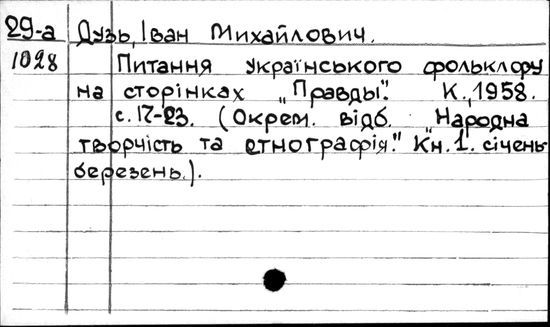 29-а Дузь, Іван Михайлович.
1028 Питання українського фольклору
на сторінках „Правды". К., 1958.
с. 17-23. (Окрем. відб. „Народна
творчість та етнографія." Кн. 1. січень
березень.).